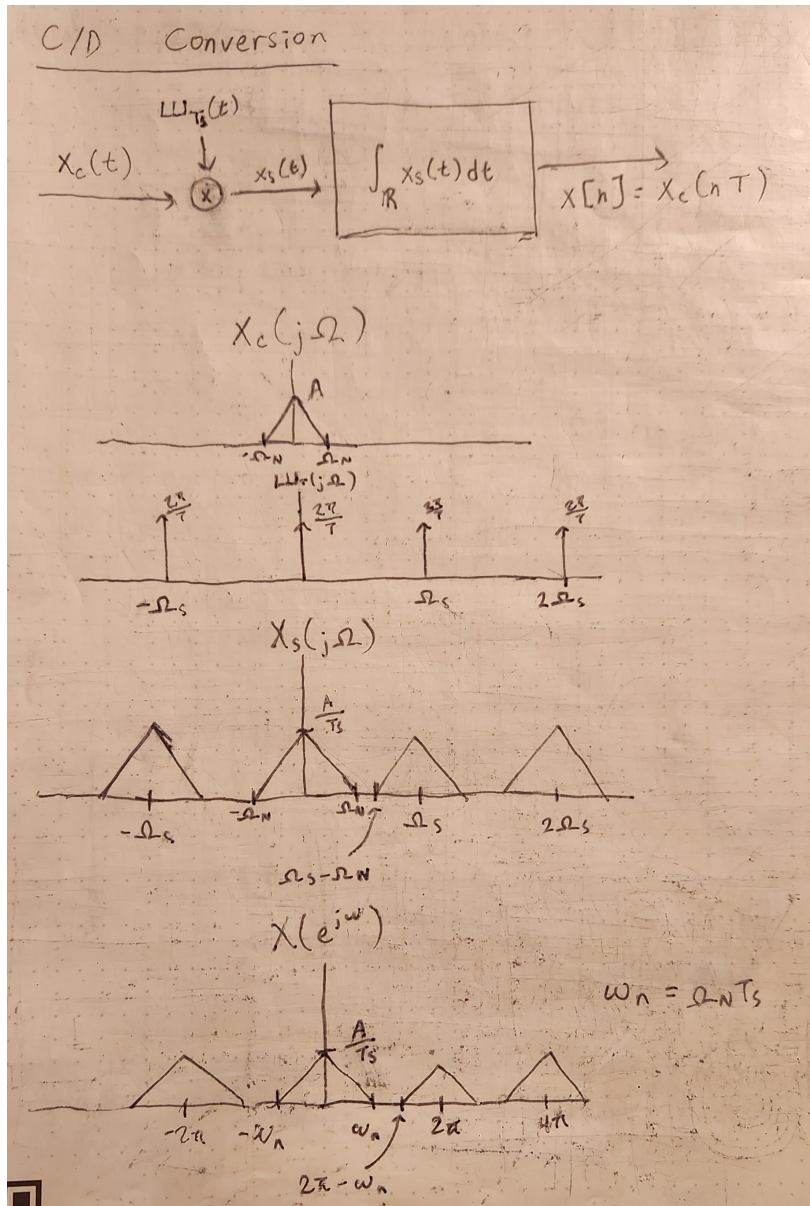 C/D Conversion
Ш_Ts(t)
x_c(t) x x_s(t) ∫_ℝ x_s(t) dt x[n] = x_c(nT)
X_c(jΩ)
A
-Ω_N Ω_N
Ш_T(jΩ)
2π/T 2π/T 2π/T 2π/T
-Ω_s Ω_s 2Ω_s
X_s(jΩ)
A/Ts
-Ω_s -Ω_N Ω_N Ω_s 2Ω_s
Ω_s-Ω_N
X(e^jω)
ω_n = Ω_N T_s
A/Ts
-2π -ω_n ω_n 2π 4π
2π-ω_n